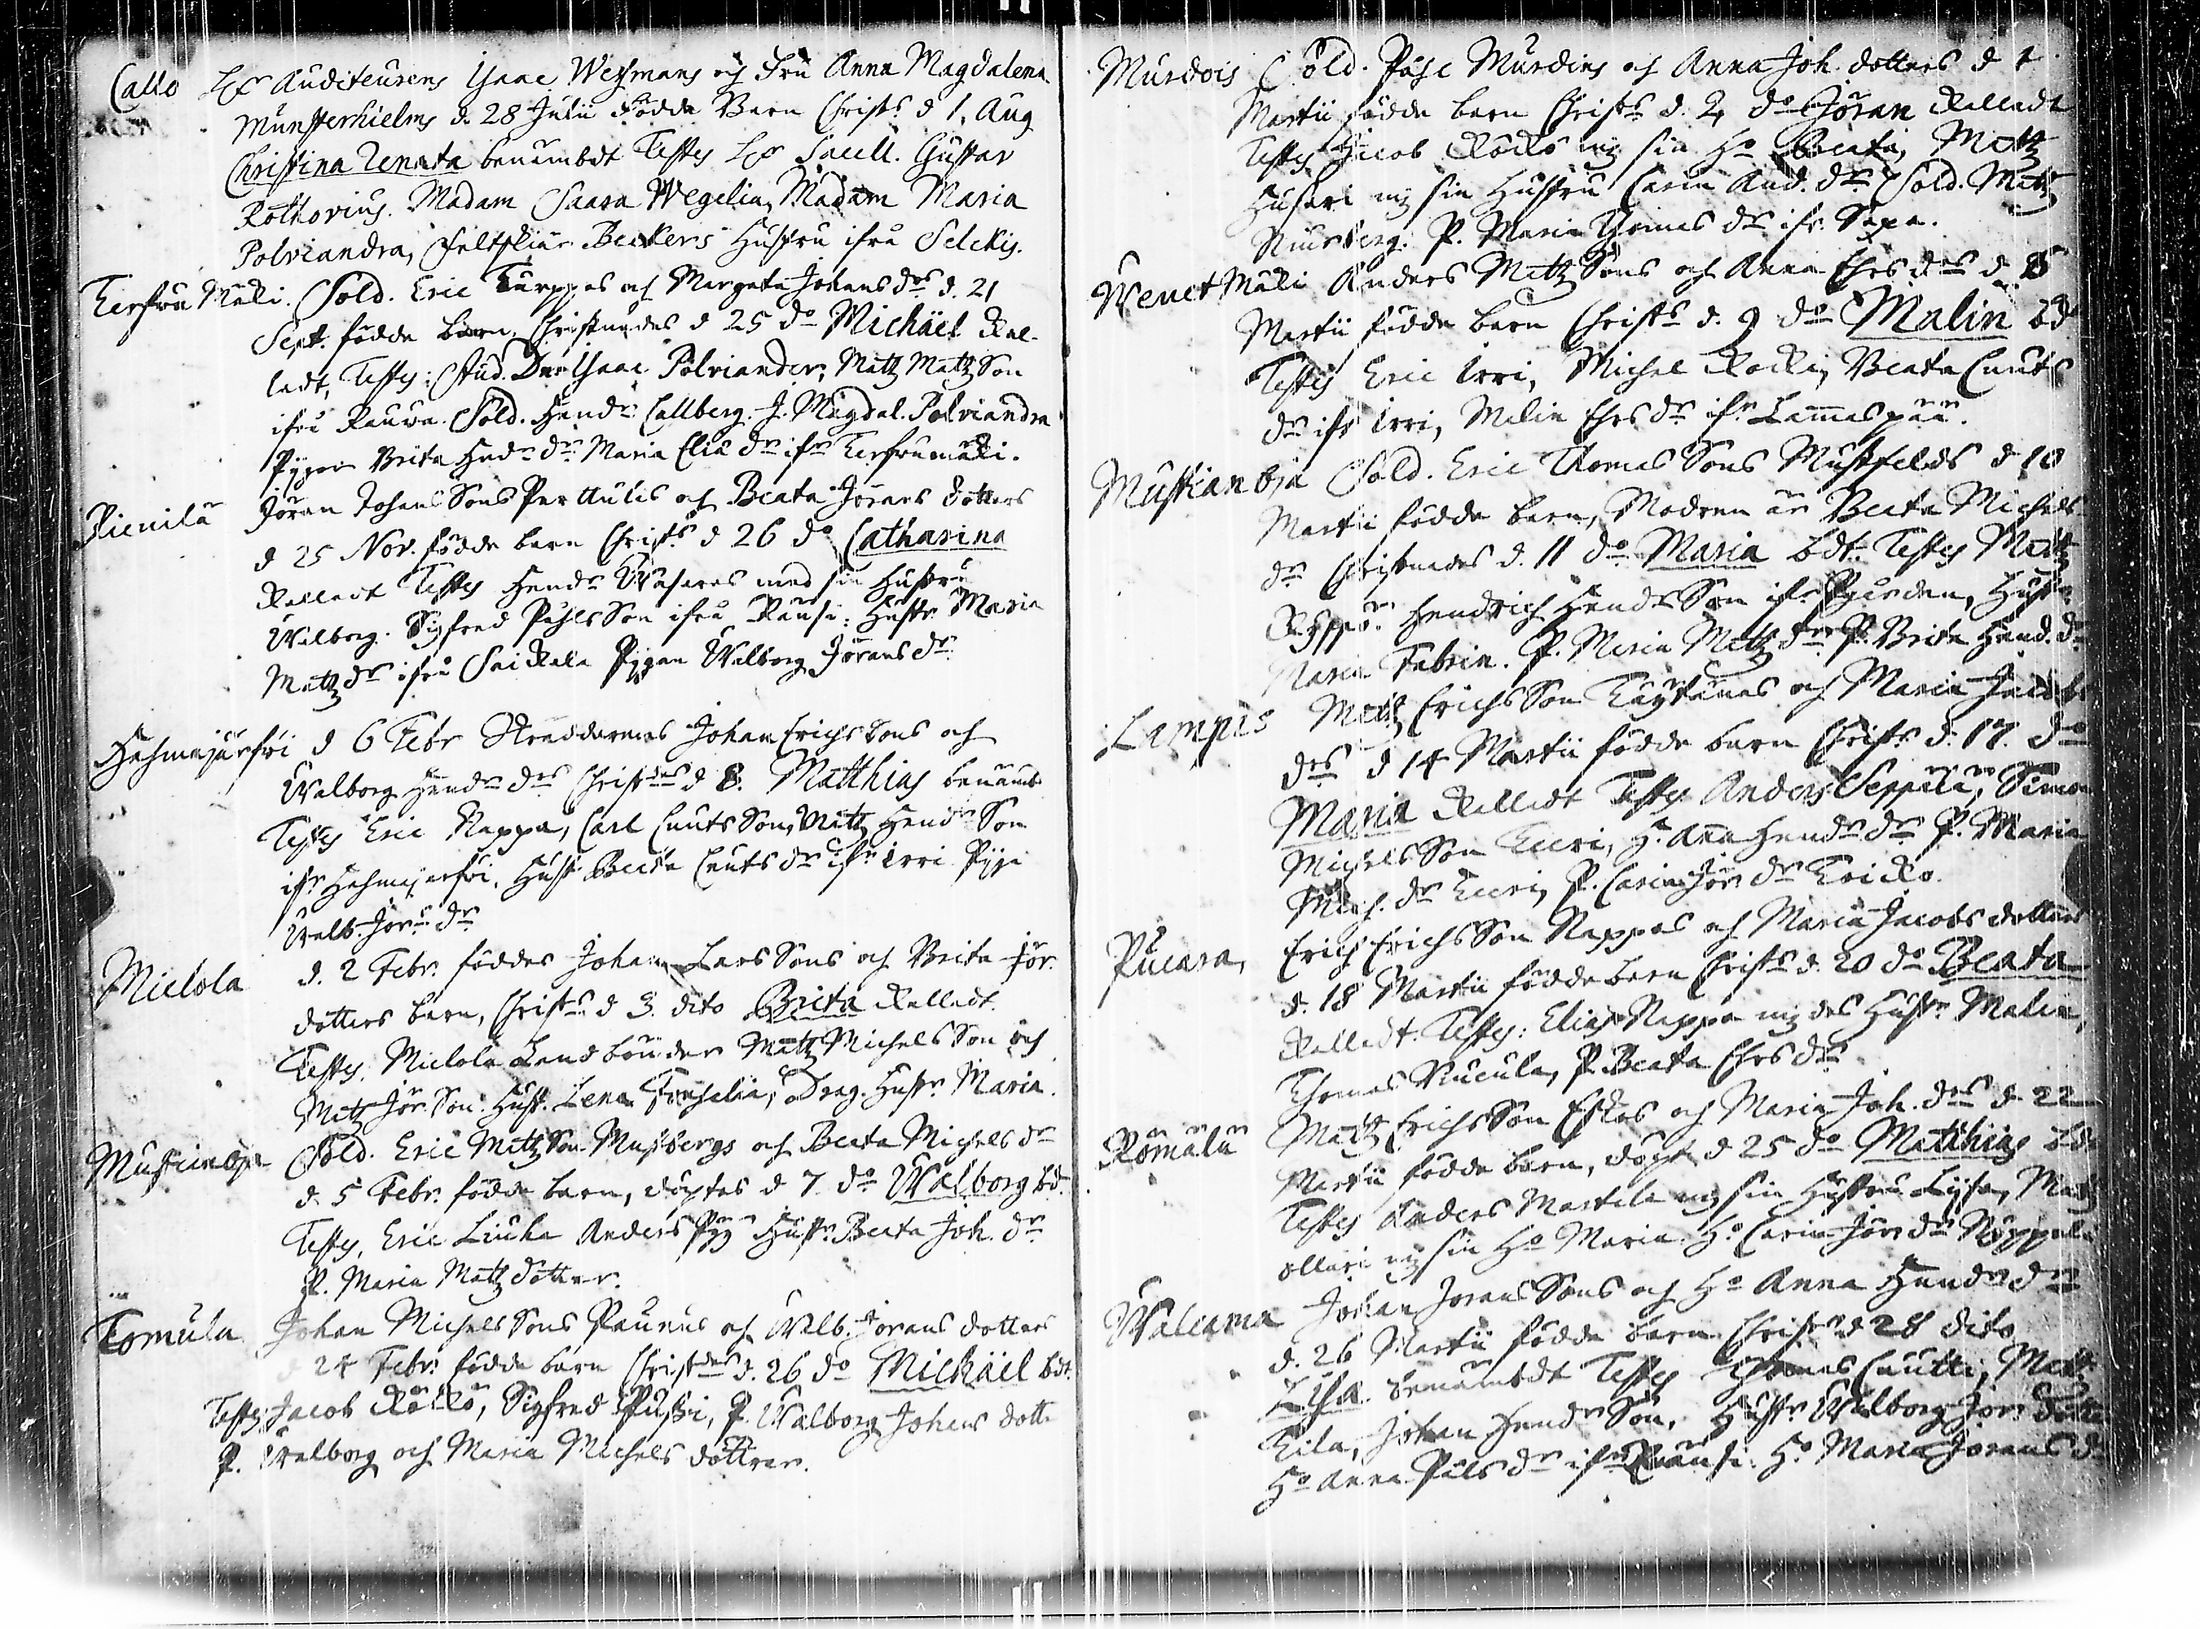 Callo Hr Auditeurens Isaac Weismans och Fru Anna Magdalena
Munsterhielms d. 28 Julii Födde Barn Christs d 1. Aug
Christina Renata benämbdt Testes Hr Sacell. Gustav
Rothovius. Madam Saara Wegelia, Madam Maria
Polviandra, Feltskiär Beckers Hustru ifrå Selckis.
Sold. Eric Turppas och Margeta Johans drs d. 21
Sept. födde barn, Christnades d 25 do Michäel Kal-
ladt, Testes: Stud. Isaac Polviander, Matz Matz Son
ifrå Rauva. Sold. Hendr Callberg. J. Magdal. Polviandra
Pigor Brita Hndr dr Maria Elia dr ifr
Jöran Johans Sons Perttulis och Beata Jörans dotters
d 25 Nov. födde barn Christs d 26 do Catharina
Kalladt Testes Hendr med sin Hustru
Walborg. Sigfred Påhls Son ifrå Hustr Maria
Matz dr ifrå Saickala Pigan Walborg Jörans dr
Hahmajärfvi d 6 Febr Skräddarens Johan Erichs Sons och
Walborg Hendr drs Christnades d 8. Matthias benämbt
Testes Eric Nappa, Carl Cnuts Son, Matz Hendr Son
ifr Hahmajerfvi, Hust. Beata Cnuts dr ifr Erri Piga
Walb. Jör dr
Mielola d. 2 Febr. föddes Johan Lars Sons och Brita Jör.
dotters barn, Christs d 3. dito Brita Kalladt.
Testes, Mielola Landbönder Matz Michels Son och
Matz Jör. Son. Hust. Lena Drag. Hustr. Maria.
Sold. Eric Matz Son Mustbergs och Beata Michels dr
d. 5 Febr. födde barn, döptes d 7. do Walborg bd.
Testes, Eric Liuka Anders Hustr. Beata Joh. dr
P. Maria Matz dotter.
Tomula Johan Michels Sons Paunus och Walb. Jörans dotters
d 24 Febr. födde barn Christnades d. 26 do Michäel bdt.
Testes Jacob Röckö, Sigfred P. Walborg Johans dott.
P. Walborg och Maria Michels döttrar.
Murdois Sold. Påhl Murdins och Anna Joh. dotters d 1
Martii födde barn Christs d. 2, do Jöran Kalladt
Testes Jacob Röckö mz sin Ho Beata, Matz
Husari mz sin Hustru Carin And. dr Sold. Matz
P. Maria Thomas dr ifr
Anders Matz Sons och Anna Ehrs drs d. 8
Martii födde barn Christs d. 9 do Malin bd
Testes Eric Erri, Michel Beata Cnuts
dr ifr Erri, Malin Ehrs dr ifr Lammaspää.
Sold. Eric Thomas Sons Mustfelds d 10
Martii födde barn, Modren är Beata Michels
dr Christnades d. 11 do Maria bdt. Testes Matz
Hendrich Hendr Son ifr
Maria Fabrin. P. Maria Matz dr P. Brita Hend. dr
Lampis Matz Erichs Son och Maria Jacobs
drs d 14 Martii födde barn Christs d. 17. do
Maria Kalladt Testes Anders Seppälä, Simon
Michels Son H. Anna Hendr dr P. Maria
Mich. dr P. Carin Jör dr
Pucara, Erich Erichs Son Nappas och Maria Jacobs dotters
d. 18 Martii födde barn Christs d. 20 do Beata
Kalladt. Testes: Elias Nappa mz des Hustr Malin,
Thomas P. Beata Ehrs dr
Römälä Matz Erichs Son och Maria Joh. drs d. 22
Martii födde barn, döpt d 25 do Matthias bd
Testes Anders Martila mz sin Hustru Lisa, Matz
mz sin Ho Maria. Ho Carin Jör dr
Johan Jörans Sons och Ho Anna Hendr drs
d. 26 Martii födde barn Christs d 28 dito
Lisa. benämbdt Testes Thomas Cnutti, Matt.
Johan Hendr Son, Hustr Walborg Jör. dotter
Ho Anna Påls dr ifr Ho Maria Jörans dr